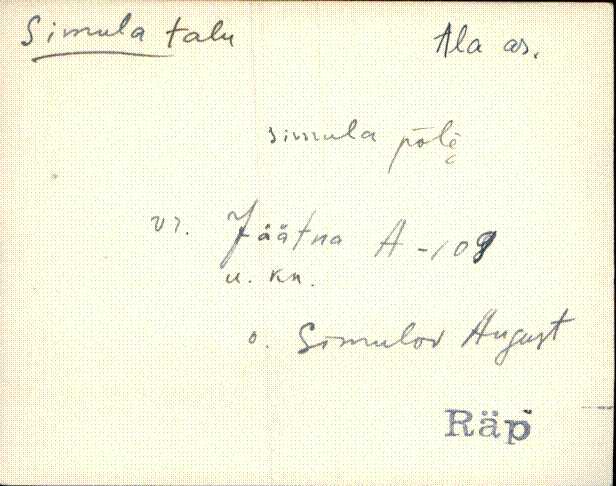 Simula talu
Ala as.
simula põlõ
vr. Jäätna A-109
u. kn.
o. Simulov August
Räp